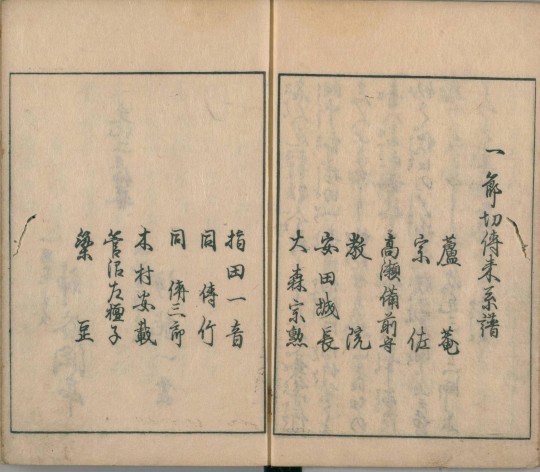 一節切傳来系譜
蘆菴
宗佐
高瀬備前守
教院
安田城長
大森宗勲
指田一音
同傳行
同傳三郎
木村安載
菅沼左
梁豆